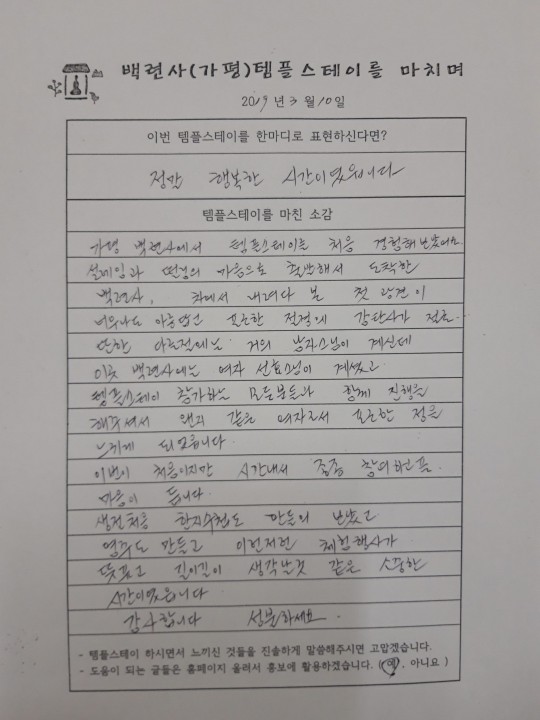 백련사(가평)템플스테이를 마치며
2019년 3월 10일
이번 템플스테이를 한마디로 표현하신다면?
정말 행복한 시간이였읍니다
템플스테이를 마친 소감
가평 백련사에서 템플스테이를 처음 경험해보았어요
설레임과 떨림의 마음으로 출발해서 도착한
백련사, 차에서 내려다 본 첫 광경이
너무나도 아름답고 포근한 절경에 감탄사가 절로.
또한 다른절에는 거의 남자스님이 계신데
이곳 백련사에는 여자 선효스님이 계셨고
템플스테이 참가하는 모든분들과 함께 진행을
해주셔서 왠지 같은 여자로서 포근한 정을
느끼게 되었읍니다.
이번이 처음이지만 시간내서 종종 참여하고픈
마음이 듭니다.
생전처음 한지수첩도 만들어 보았고
염주도 만들고 이런저런 체험행사가
뜻깊고 길이길이 생각난것 같은 소중한
시간이였읍니다
감사합니다 성불하세요.
- 템플스테이 하시면서 느끼신 것들을 진솔하게 말씀해주시면 고맙겠습니다.
- 도움이 되는 글들은 홈페이지 올려서 홍보에 활용하겠습니다. (예, 아니요 )